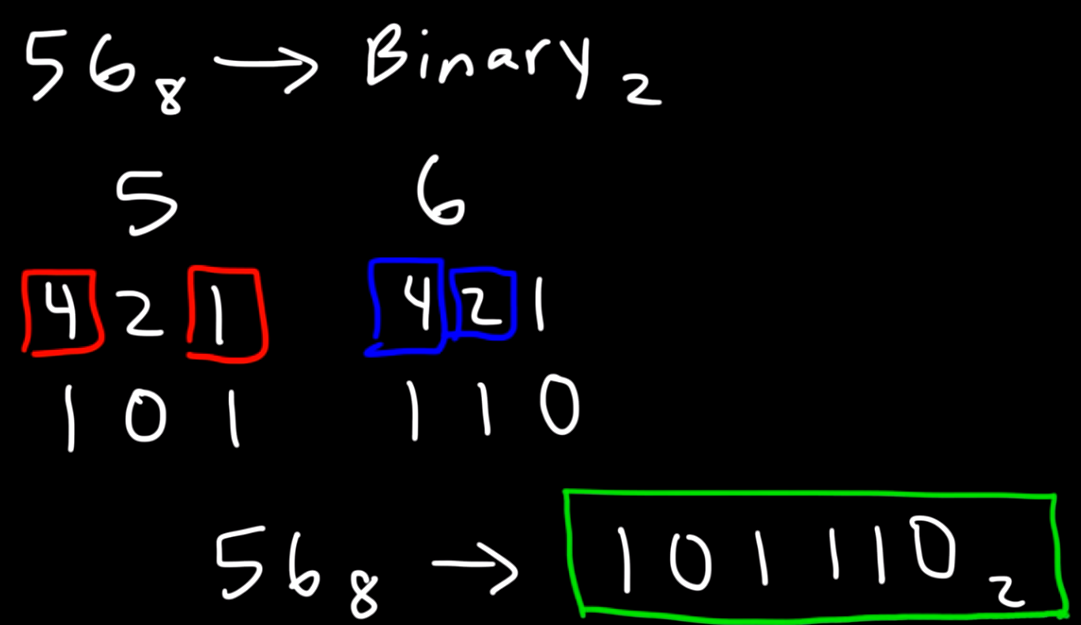 56₈ → Binary₂
5 6
4 2 1 4 2 1
1 0 1 1 1 0
56₈ → 101110₂